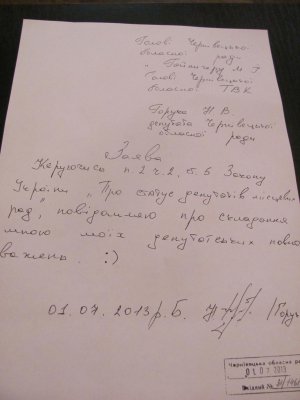 Голові Чернівецької
обласної ради
Гайничеру М. І
Голові Чернівецької
обласної ТВК
Горука Н. В.
депутата Чернівецької
обласної ради
Заява
Керуючись п. 2 ч. 2, ст. 5 Закону
України „Про статус депутатів місцевих
рад", повідомляю про складання
мною моїх депутатських повно
важень. :)
01.07.2013 р. Б.
Чернівецька обласна ра
01 07 2013
Вхідний №